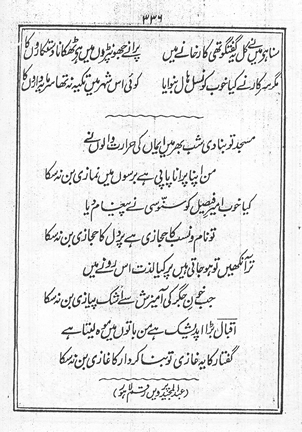 ۳۳۶
سنا ہے میں نے کل یہ گفتگو تھی کارخانے میں
پرانے جھونپڑوں میں ہے ٹھکانا دستکاروں کا
مگر سرکار نے کیا خوب کونسل ہال بنوایا
کوئی اس شہر میں تکیہ نہ تھا سرمایہ داروں کا
مسجد تو بنا دی شب بھر میں ایماں کی حرارت والوں نے
من اپنا پرانا پاپی ہے برسوں میں نمازی بن نہ سکا
کیا خوب امیر فیصل کو سنوسی نے پیغام دیا
تو نام و نسب کا حجازی ہے پر دل کا حجازی بن نہ سکا
تر آنکھیں تو ہو جاتی ہیں پر کیا لذت اس رونے میں
جب خون جگر کی آمیزش سے اشک پیازی بن نہ سکا
اقبال بڑا اپدیشک ہے من باتوں میں موہ لیتا ہے
گفتار کا یہ غازی تو بنا کردار کا غازی بن نہ سکا
(عبدالمجید پرویں رقم لاہور)